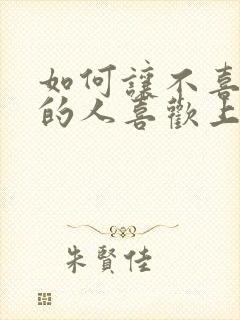 如何讓不喜
的人喜歡上
朱賢佳